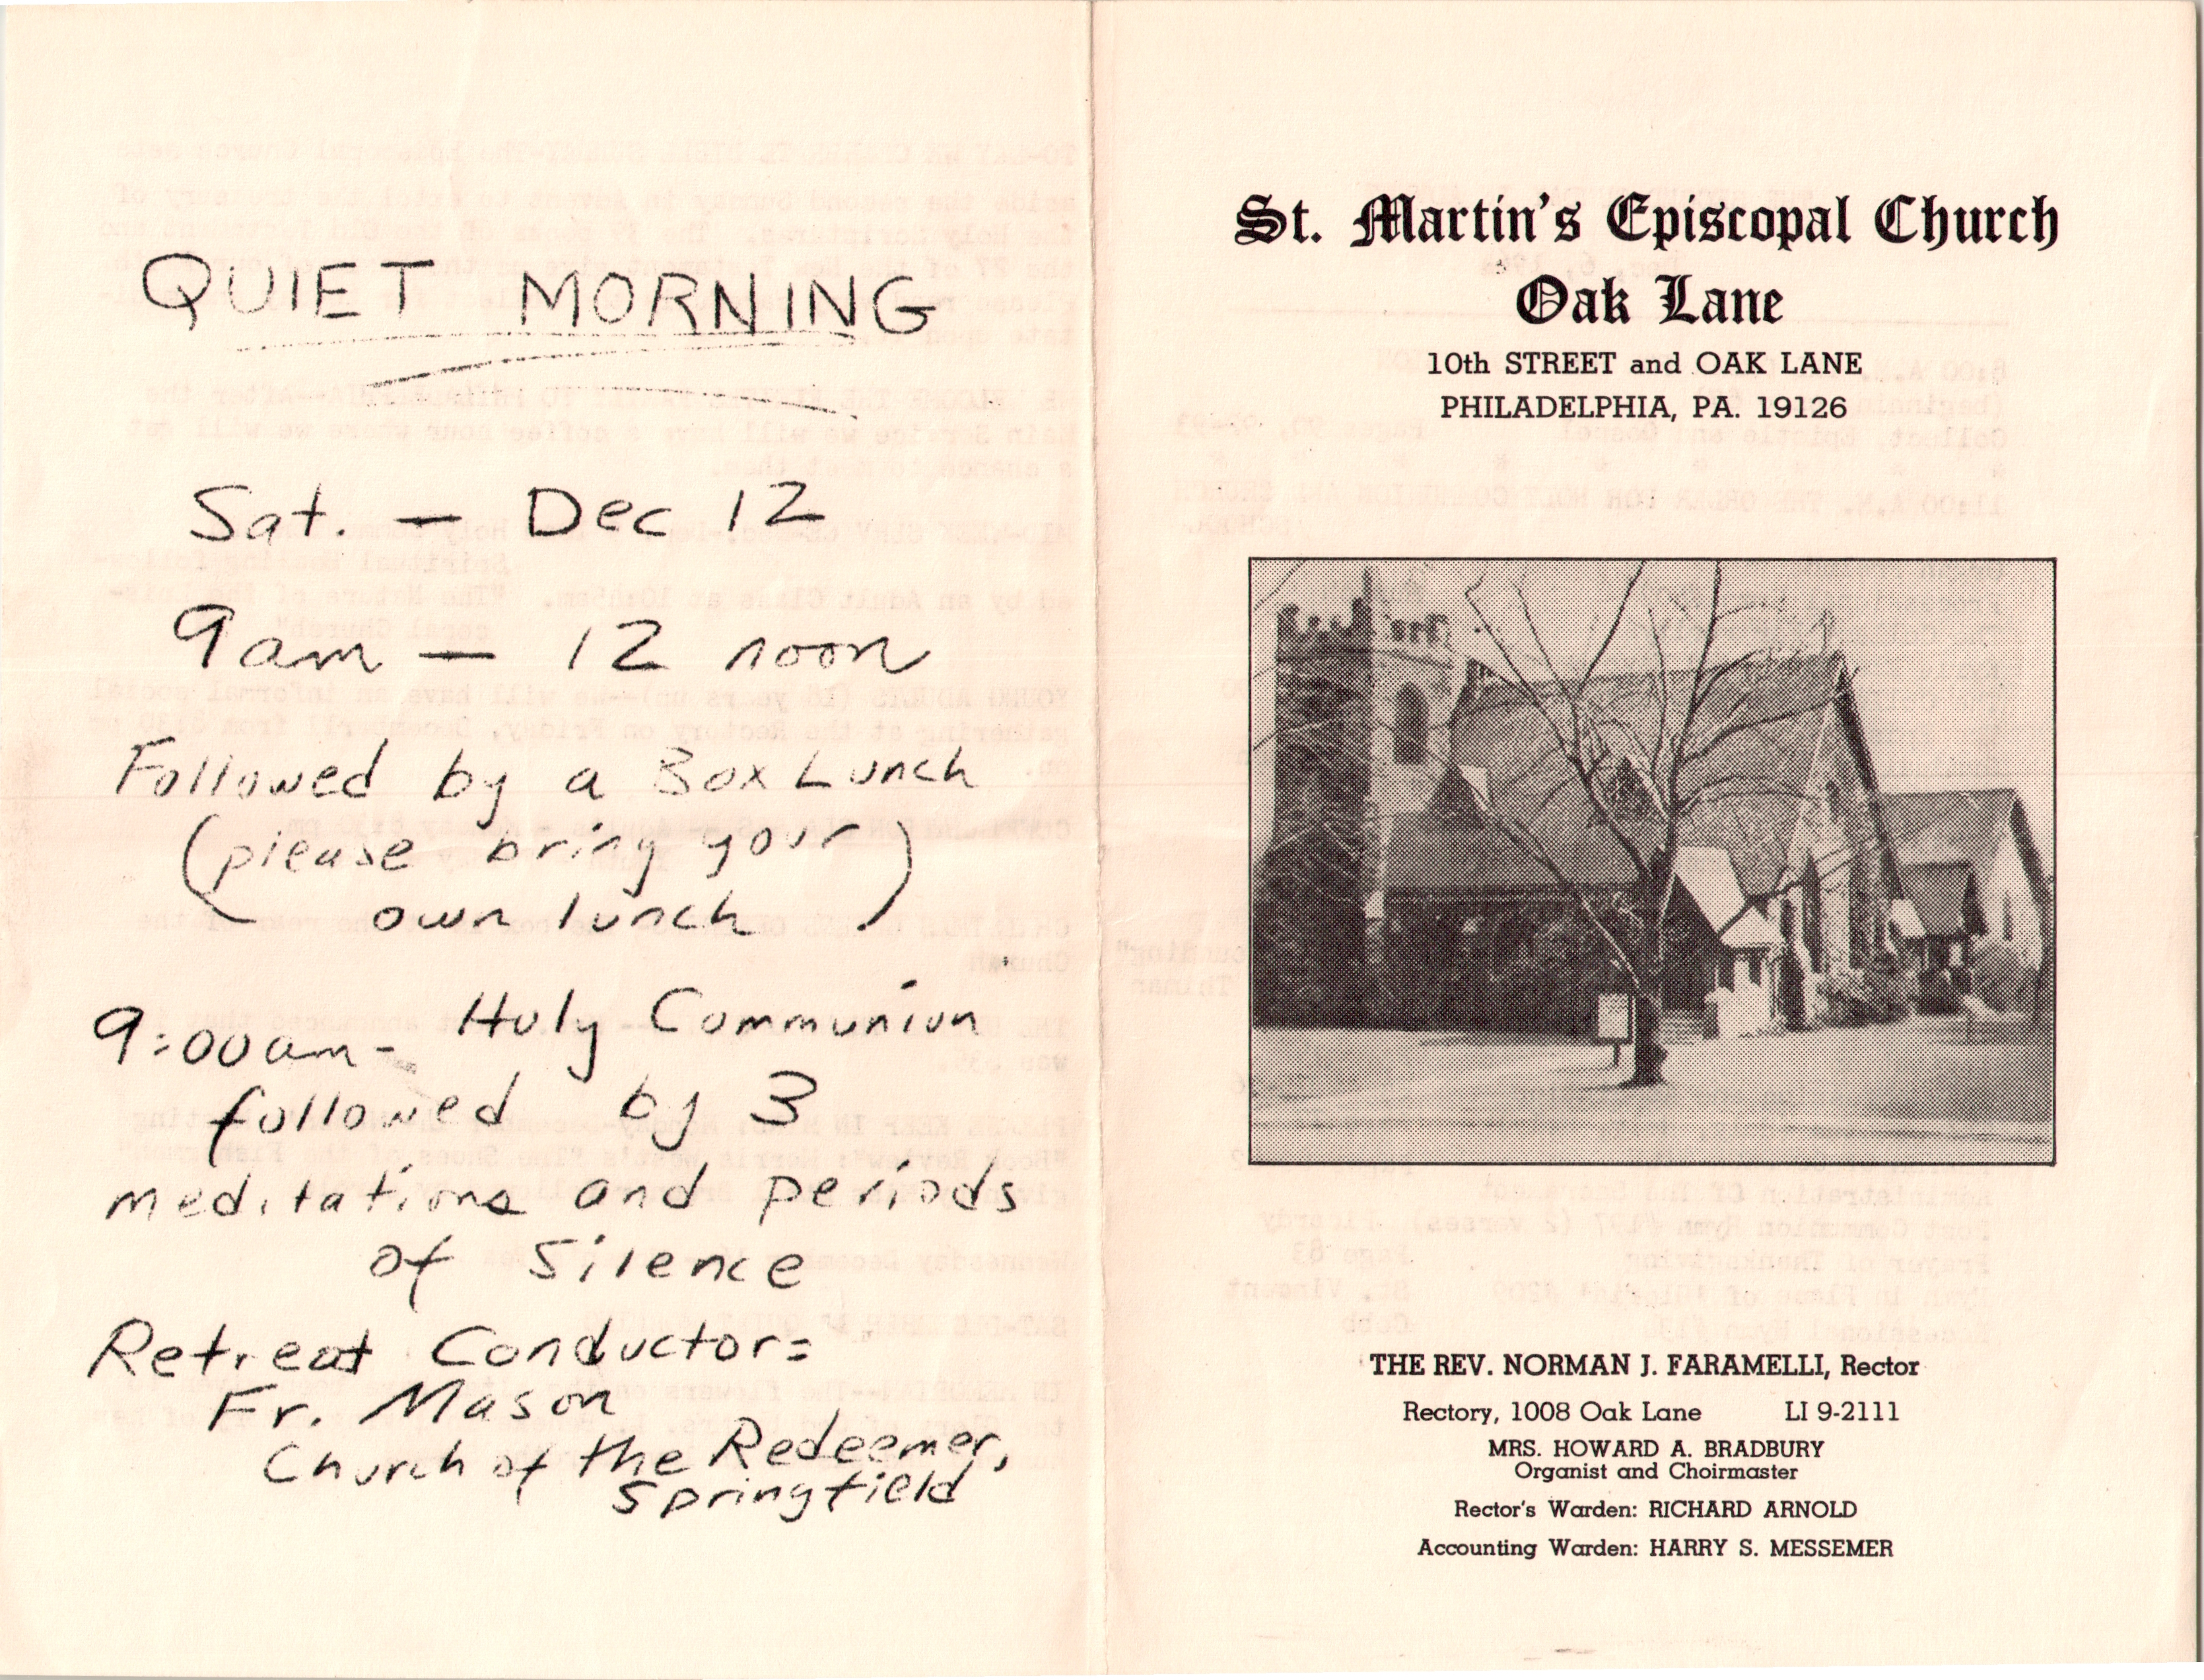 QUIET MORNING
Sat. — Dec 12
9am — 12 noon
Followed by a Box Lunch
(please bring your
own lunch)
9:00am - Holy Communion
followed by 3
meditations and periods
of Silence
Retreat Conductor:
Fr. Mason
Church of the Redeemer,
Springfield
St. Martin's Episcopal Church
Oak Lane
10th STREET and OAK LANE
PHILADELPHIA, PA. 19126
THE REV. NORMAN J. FARAMELLI, Rector
Rectory, 1008 Oak Lane LI 9-2111
MRS. HOWARD A. BRADBURY
Organist and Choirmaster
Rector's Warden: RICHARD ARNOLD
Accounting Warden: HARRY S. MESSEMER